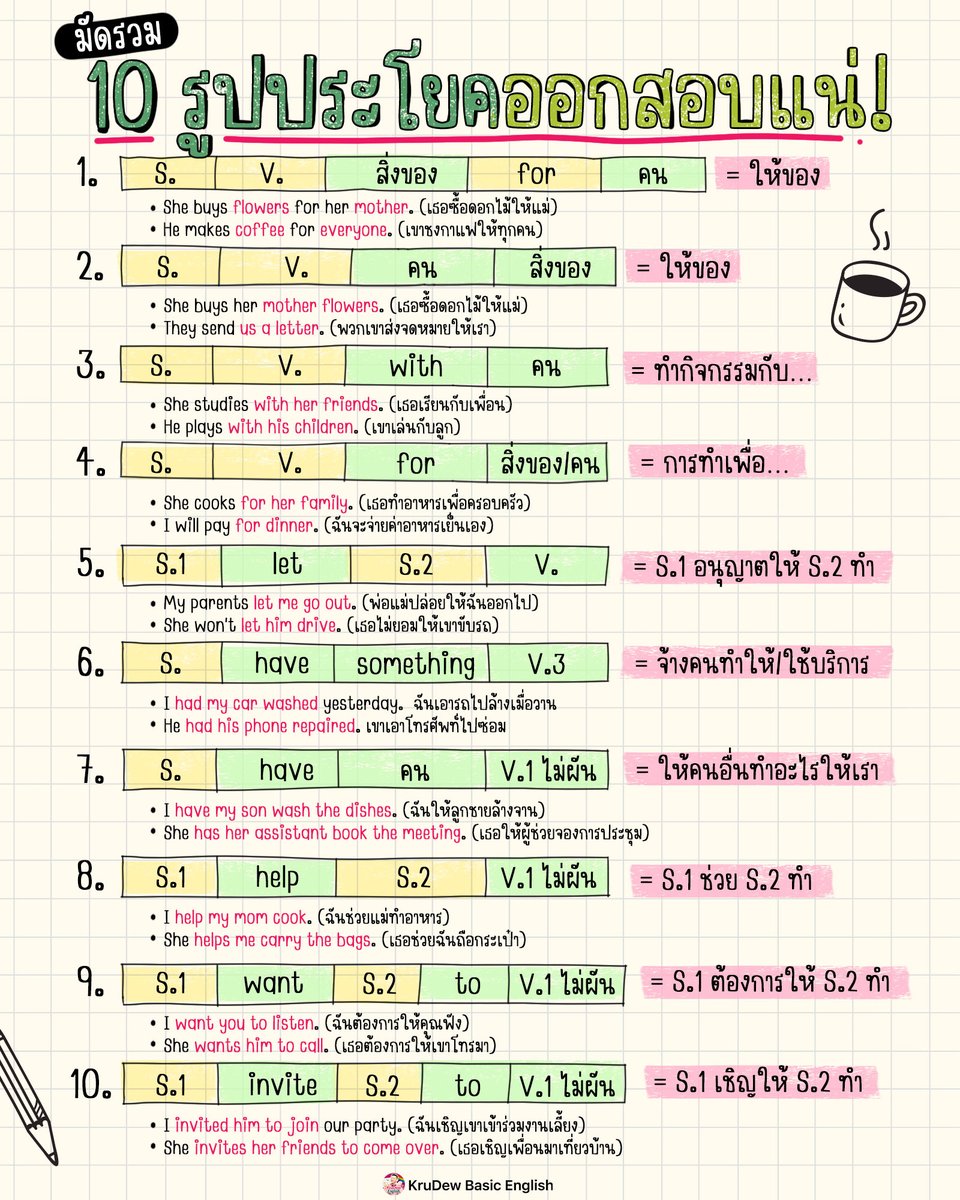 มัดรวม
10 รูปประโยคออกสอบแน่!
1. S. V. สิ่งของ for คน = ให้ของ
• She buys flowers for her mother. (เธอซื้อดอกไม้ให้แม่)
• He makes coffee for everyone. (เขาชงกาแฟให้ทุกคน)
2. S. V. คน สิ่งของ = ให้ของ
• She buys her mother flowers. (เธอซื้อดอกไม้ให้แม่)
• They send us a letter. (พวกเขาส่งจดหมายให้เรา)
3. S. V. with คน = ทำกิจกรรมกับ...
• She studies with her friends. (เธอเรียนกับเพื่อน)
• He plays with his children. (เขาเล่นกับลูก)
4. S. V. for สิ่งของ/คน = การทำเพื่อ...
• She cooks for her family. (เธอทำอาหารเพื่อครอบครัว)
• I will pay for dinner. (ฉันจะจ่ายค่าอาหารเย็นเอง)
5. S.1 let S.2 V. = S.1 อนุญาตให้ S.2 ทำ
• My parents let me go out. (พ่อแม่ปล่อยให้ฉันออกไป)
• She won't let him drive. (เธอไม่ยอมให้เขาขับรถ)
6. S. have something V.3 = จ้างคนทำให้/ใช้บริการ
• I had my car washed yesterday. ฉันเอารถไปล้างเมื่อวาน
• He had his phone repaired. เขาเอาโทรศัพท์ไปซ่อม
7. S. have คน V.1 ไม่ผัน = ให้คนอื่นทำอะไรให้เรา
• I have my son wash the dishes. (ฉันให้ลูกชายล้างจาน)
• She has her assistant book the meeting. (เธอให้ผู้ช่วยจองการประชุม)
8. S.1 help S.2 V.1 ไม่ผัน = S.1 ช่วย S.2 ทำ
• I help my mom cook. (ฉันช่วยแม่ทำอาหาร)
• She helps me carry the bags. (เธอช่วยฉันถือกระเป๋า)
9. S.1 want S.2 to V.1 ไม่ผัน = S.1 ต้องการให้ S.2 ทำ
• I want you to listen. (ฉันต้องการให้คุณฟัง)
• She wants him to call. (เธอต้องการให้เขาโทรมา)
10. S.1 invite S.2 to V.1 ไม่ผัน = S.1 เชิญให้ S.2 ทำ
• I invited him to join our party. (ฉันเชิญเขาเข้าร่วมงานเลี้ยง)
• She invites her friends to come over. (เธอเชิญเพื่อนมาเที่ยวบ้าน)
KruDew Basic English